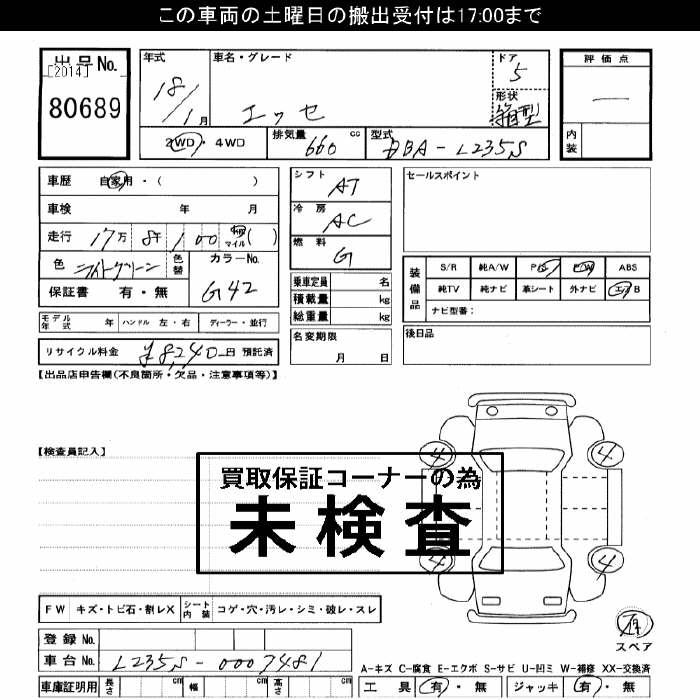 この車両の土曜日の搬出受付は17:00まで
出品No.
[2014]
80689
年式
18/1月
車名・グレード
エッセ
ドア
5
形状
箱型
評価点
―
内装
2WD・4WD
排気量
660 cc
型式
DBA-L235S
車歴 自家用・( )
車検 年 月
走行 17万 8千 100 キロ マイル ( )
色 ライトグリーン
色替
カラーNo.
G42
保証書 有・無
シフト
AT
冷房
AC
燃料
G
乗車定員 名
積載量 kg
総重量 kg
名変期限
月 日
セールスポイント
装備品
S/R 純A/W P/S P/W ABS
純TV 純ナビ 革シート 外ナビ エアB
ナビ型番:
後日品
モデル年式 年 ハンドル 左・右 ディーラー・並行
リサイクル料金 ¥8,240-円 預託済
【出品店申告欄(不良箇所・欠品・注意事項等)】
【検査員記入】
買取保証コーナーの為
未検査
4
4
4
4
FW キズ・トビ石・割レX
シート内装 コゲ・穴・汚レ・シミ・破レ・スレ
登録No.
車台No. L235S-0007481
車庫証明用 長さ cm 幅 cm 高さ cm
有
スペア
A-キズ C-腐食 E-エクボ S-サビ U-凹ミ W-補修 XX-交換済
工具 有・無 ジャッキ 有・無